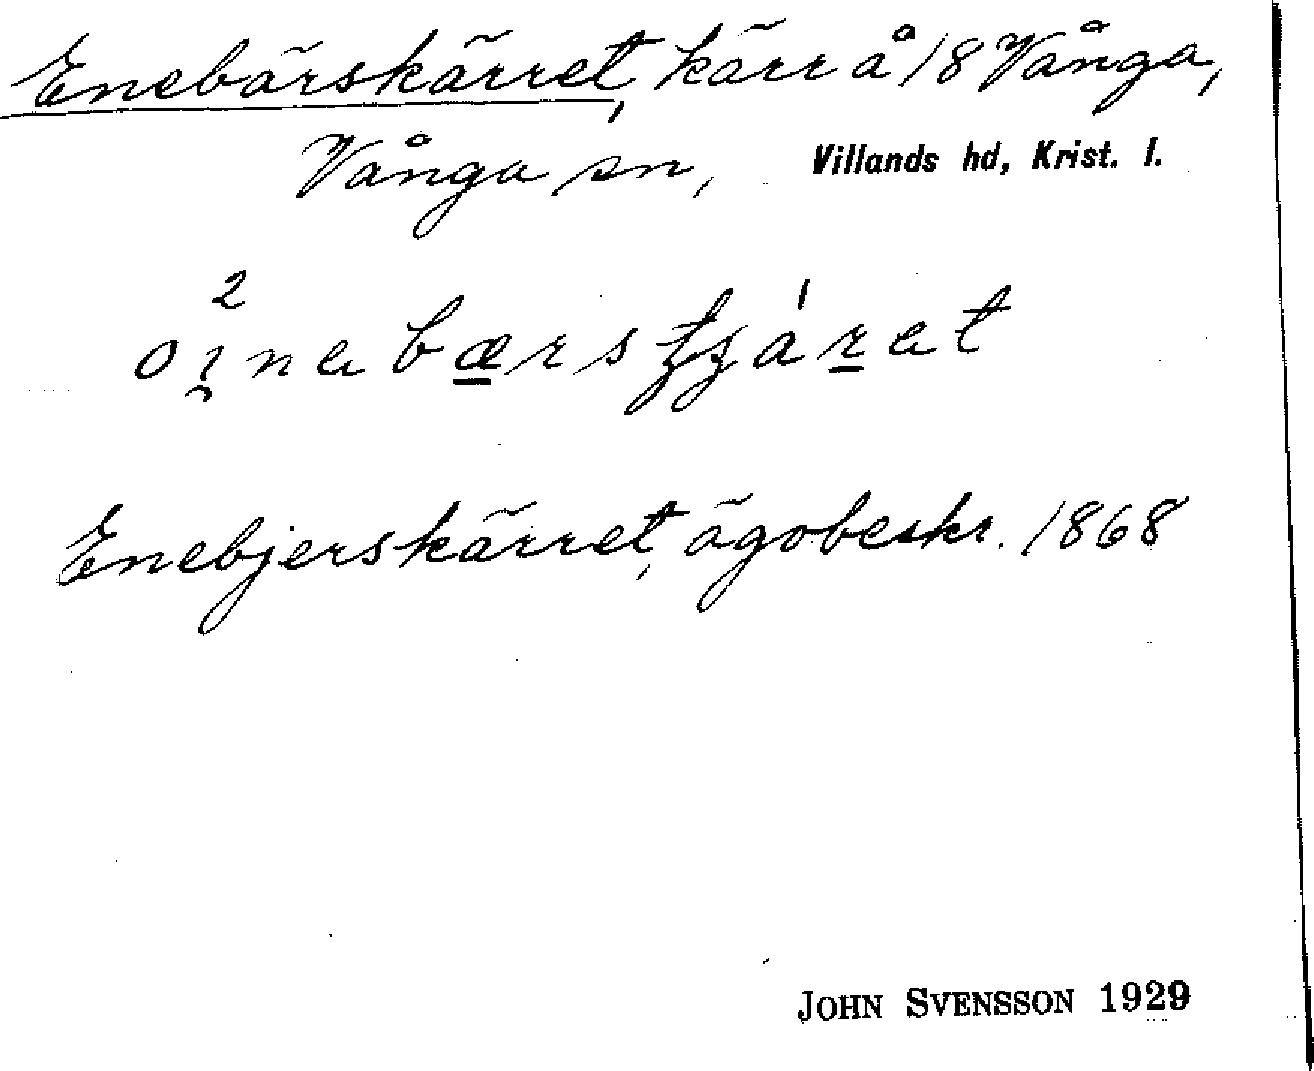 Enebärskärret, kärr å 18 Vånga,
Vånga sn, Villands hd, Krist. l.
Enebjerskärret, ägobeskr. 1868
JOHN SVENSSON 1929